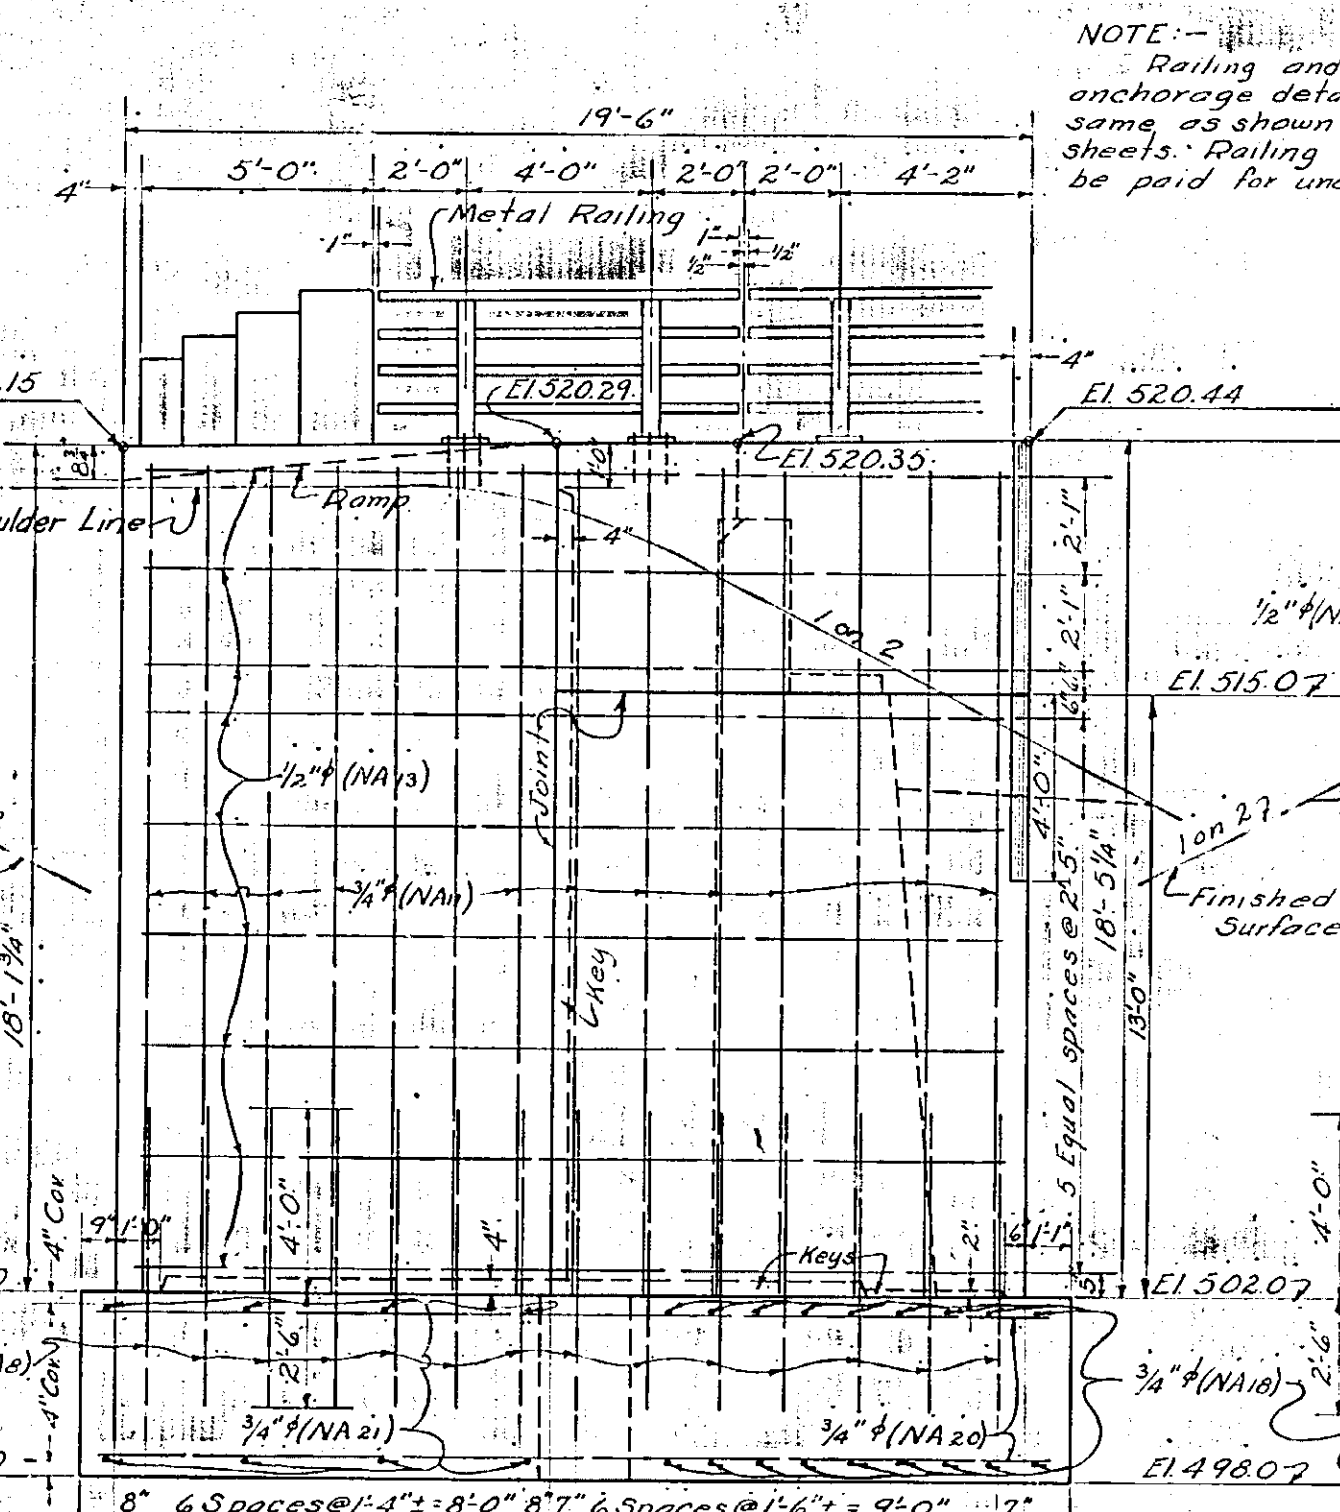 NOTE:-
Railing and
anchorage deta
same as shown
sheets. Railing
be paid for und
19'-6"
4" 5'-0" 2'-0" 4'-0" 2'-0" 2'-0" 4'-2"
Metal Railing
1" 1"
1/2" 1/2"
4"
.15
El. 520.29
El. 520.44
El. 520.35
8 3/4"
1'-0"
Ramp
ulder Line
4"
2'-1"
1 on 2
1/2" φ (N
2'-1"
El. 515.07
6" 6"
Joint
1/2" φ (NA13)
4'-0"
1 on 27
3/4" φ (NA11)
Finished
Surface
18'-1 3/4"
Key
5 Equal spaces @ 2'-5"
18'-5 1/4"
13'-0"
4" Cov.
9" 1'-0"
4'-0"
4"
Keys
2"
6" 1'-1"
4'-0"
5"
El. 502.07
2'-6"
4" Cov.
2'-6"
3/4" φ (NA18)
3/4" φ (NA21)
3/4" φ (NA20)
El. 498.07
8" 6 Spaces @ 1'-4"± = 8'-0" 8" 7" 6 Spaces @ 1'-6"± = 9'-0" 7"